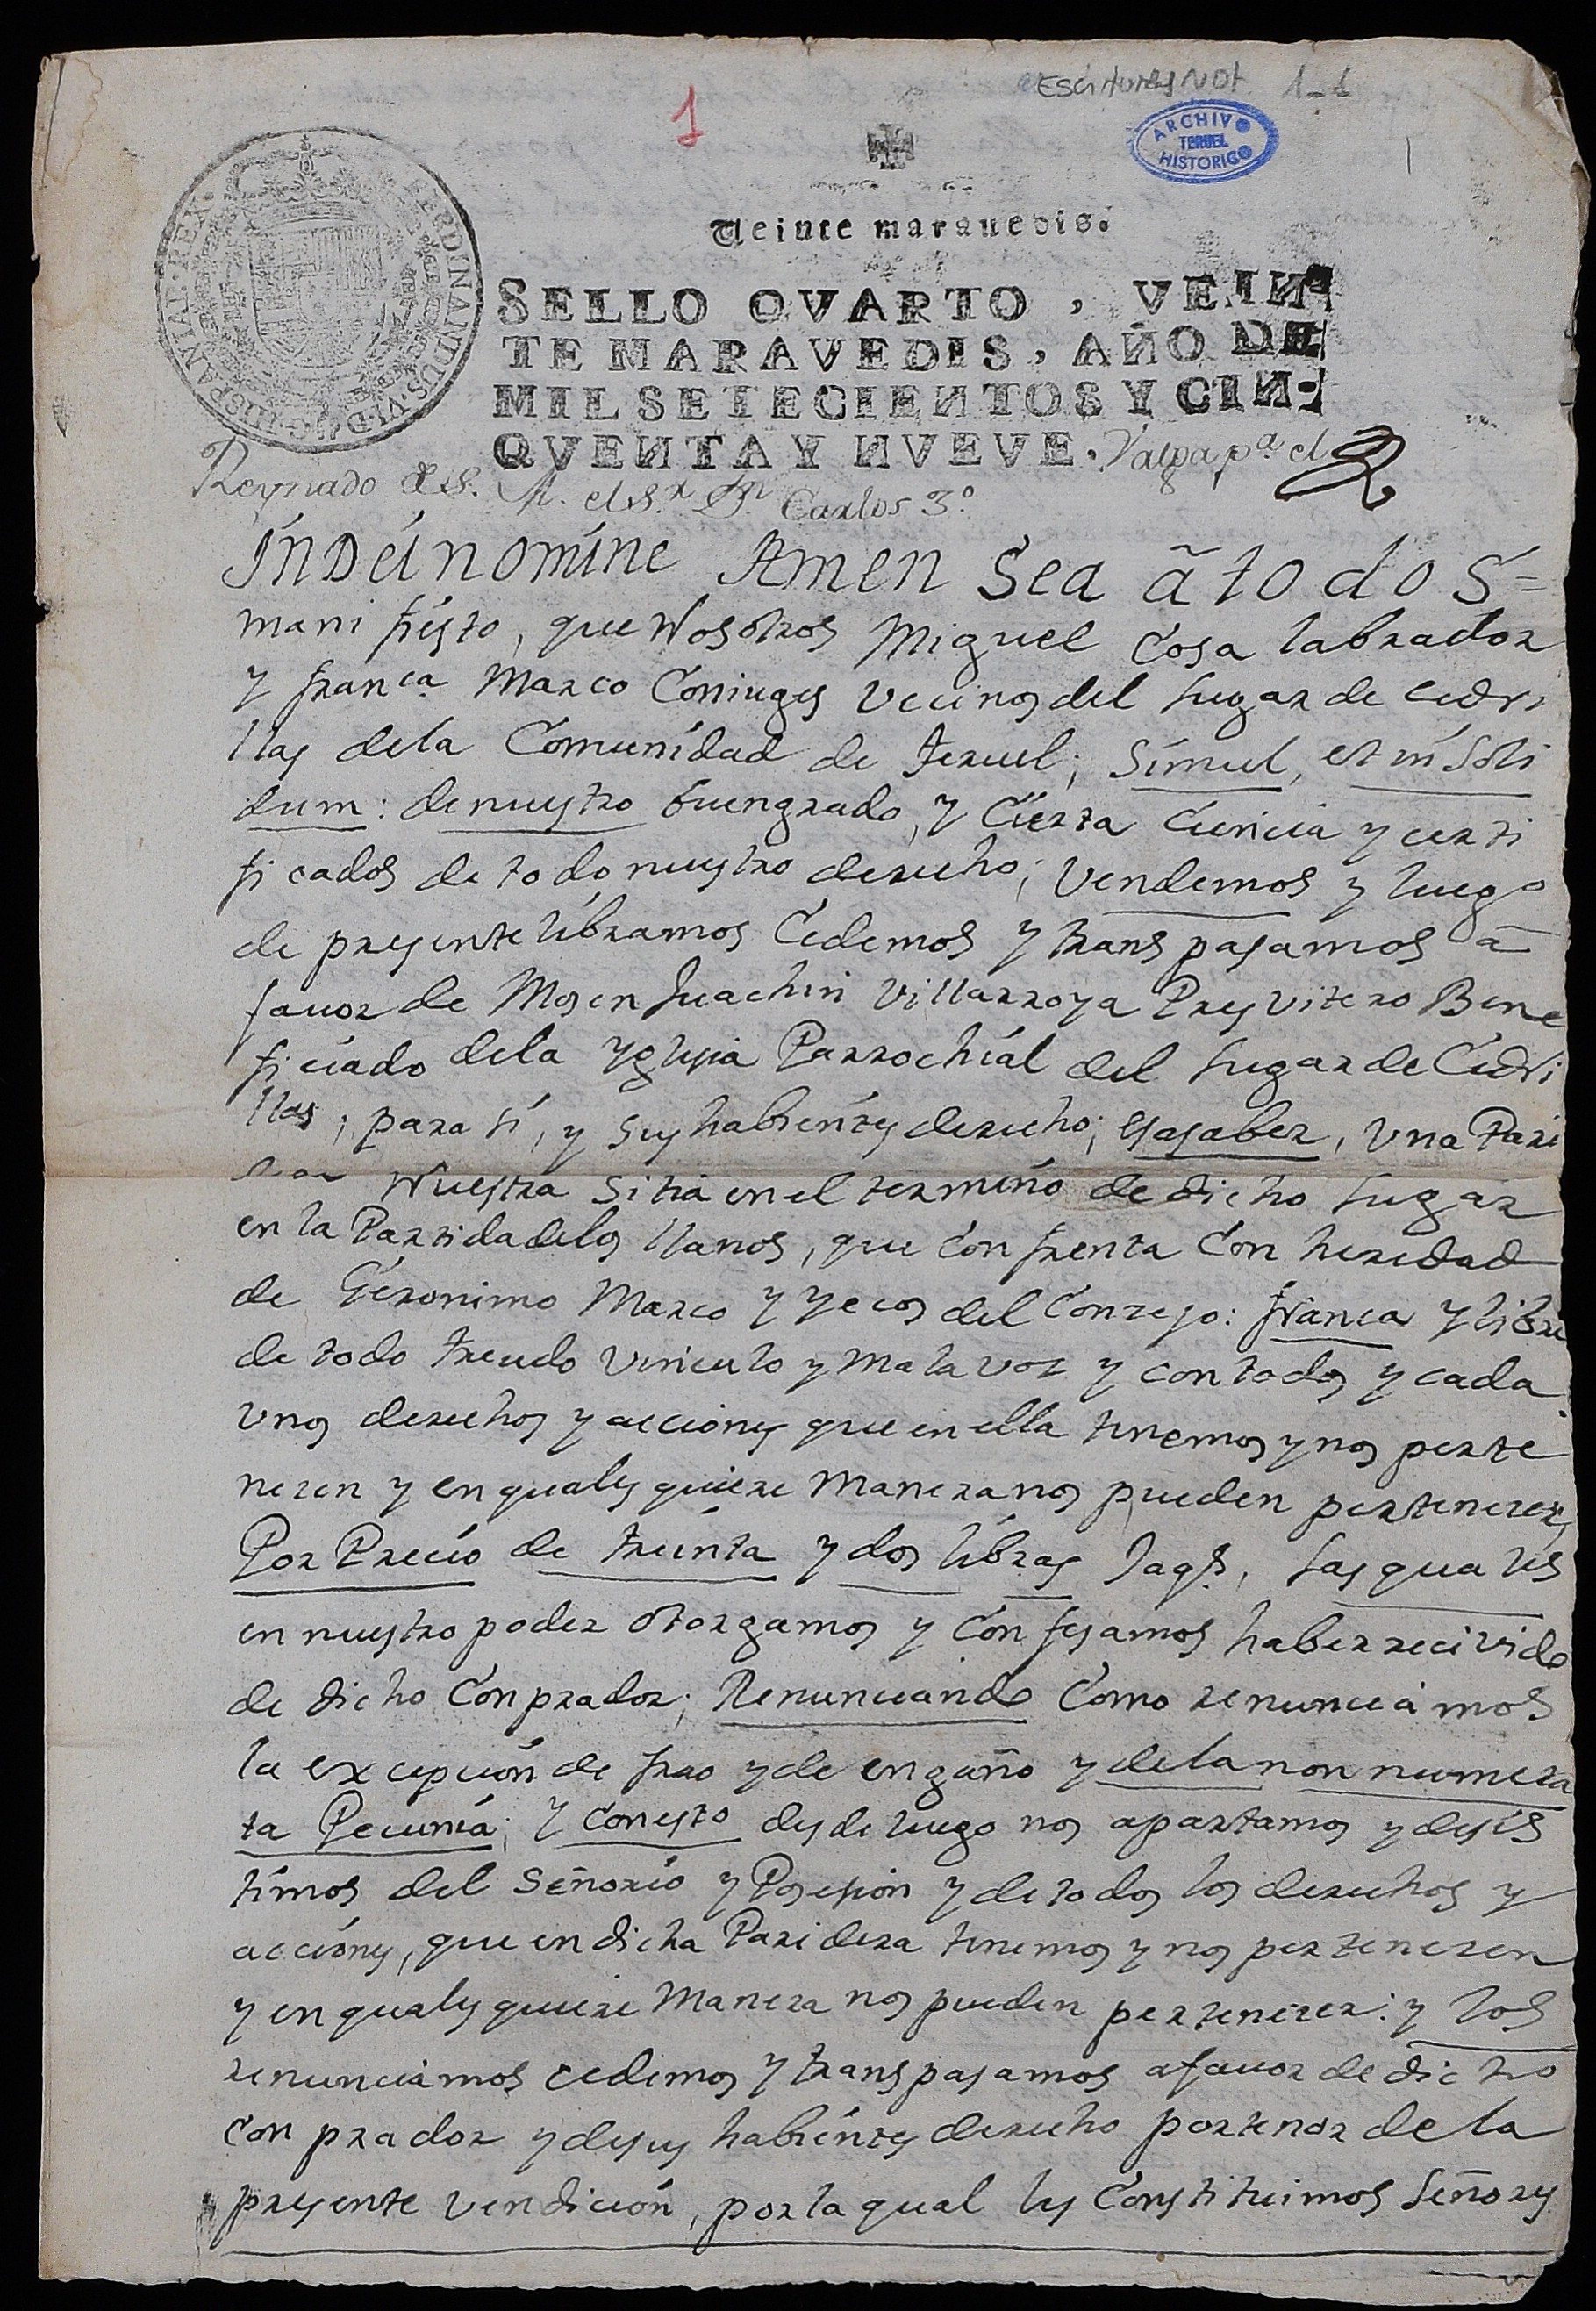 Escritures Not. 1-1
1
ARCHIVO
TERUEL
HISTORICO
Veinte marauedis.
FERDINANDUS·VI·D·G·HISPANIAR·REX·
SELLO QVARTO, VEIN-
TE MARAVEDIS, AÑO DE
MIL SETECIENTOS Y CIN-
QVENTA Y NUEVE. Valga pª el
Reynado de S. M. el Sr. Dn. Carlos 3º
InDéi nomíne Amen Sea ā todos =
mani fiésto, que Nosotros Miguel Cosa labrador
y franca Marco Coniuges vecinos del Lugar de Cedri
llas dela Comunídad de Teruel; Símul, et in soli
dum: denuestro buengrado, y Cierta Ciencia y certi
ficados de todo nuestro derecho; Vendemos y luego
de presente libramos Cedemos y transpasamos ā
fauor de Mosen Juachin Villarroya Presvitero Bene
ficiado dela Yglesia Parrochíal del Lugar de Cedri
llas; para sí, y sus habientes derecho; esasaber, Vna Pari
dera Nuestra Sitia en el termino de dicho Lugar
en la Partida delos llanos, que Confrenta Con heredad
de Geronimo Marco y yecos del Conzejo: franca y libre
de todo treudo vinculo y mala voz y con todos y cada
vnos derechos y acciones que en ella tenemos y nos perte
nezen y en quales quiere Manera nos pueden pertenezer,
Por Precio de treínta y dos líbras Jaqs, Las quales
en nuestro poder otorgamos y Confesamos haber recivido
de dicho Conprador; Renunciando Como renunciamos
la excepción de frao y de engaño y dela non numera
ta Pecunía; y Conesto desde luego nos apartamos y desis
tímos del Señorío y Posesion y de todos los derechos y
acciónes, que en dicha Paridera tenemos y nos pertenezen
y en quales quiere Manera nos pueden pertenezer: y los
renunciamos cedemos y transpasamos afauor de dicho
Conprador y desus habiéntes derecho portenor de la
presente vendición, porla qual les Constituimos Señores